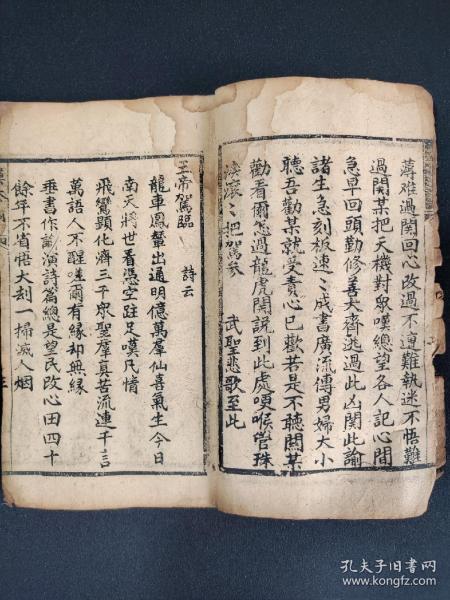 薄難過関回心改過不逢難執迷不悟難
過関某把天機對眾嘆總望各人記心間
急早回頭勤修善大齊逃過此凶関此諭
諸生急刻板速〻成書廣流傳男婦大小
聽吾勸某就受責心已歡若是不聽関某
勸看爾怎過龍虎関說到此處哽喉管珠
淚滾〻把駕參
武聖悲歌至此
玉帝駕臨
詩云
龍車鳳輦出通明億萬羣仙喜氣生今日
南天將世看憑空駐足嘆凡情
飛鸞顯化濟三千眾聖羣真苦流連千言
萬語人不醒嗟爾有緣却無緣
垂書作諭演詩篇總是望民改心田四十
餘年不省悟大刼一掃滅人烟
三
孔夫子旧书网
www.kongfz.com